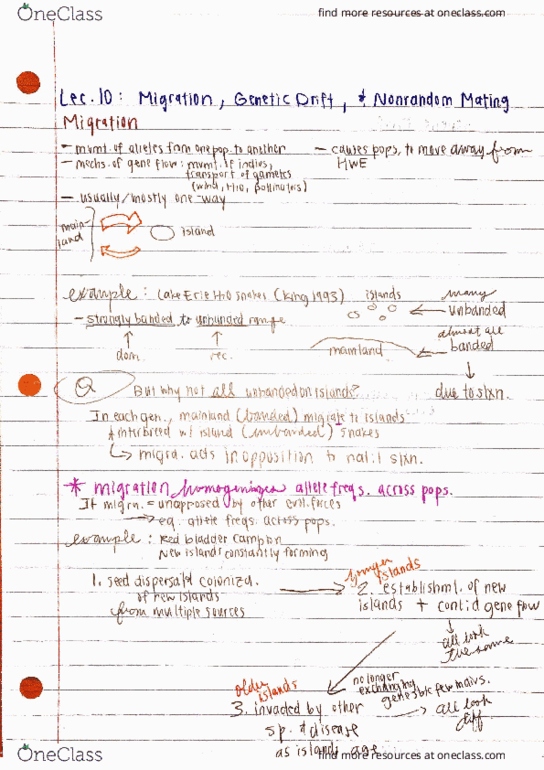 OneClass
find more resources at oneclass.com
Lec. 10: Migration, Genetic Drift, & Nonrandom Mating
Migration
- mvmt. of alleles from one pop to another
- causes pops. to move away from HWE
- mechs. of gene flow: mvmt. of indivs,
transport of gametes
(wind, H2O, pollinators)
- usually/mostly one-way
main-
land
island
example: Lake Erie H2O snakes (King 1993)
islands
many
unbanded
- strongly banded to unbanded range
almost all
banded
dom.
rec.
mainland
Q
But why not all unbanded on islands?
due to slxn.
In each gen., mainland (banded) migrate to islands
& interbreed w/ island (unbanded) snakes
migra. acts in opposition to nat'l slxn.
* migration homogenizes allele freqs. across pops.
If migrn. = unapposed by other evol. forces
eq. allele freqs. across pops.
example: Red bladder campion
New islands constantly forming
younger
islands
1. seed dispersal & coloniza.
of new islands
from multiple sources
2. establishml. of new
islands + cont'd gene flow
all look
the same
older
islands
no longer
exchanging
genes b/c few
3. invaded by other
sp. & disease
as islands age
all look
diff
OneClass
find more resources at oneclass.com